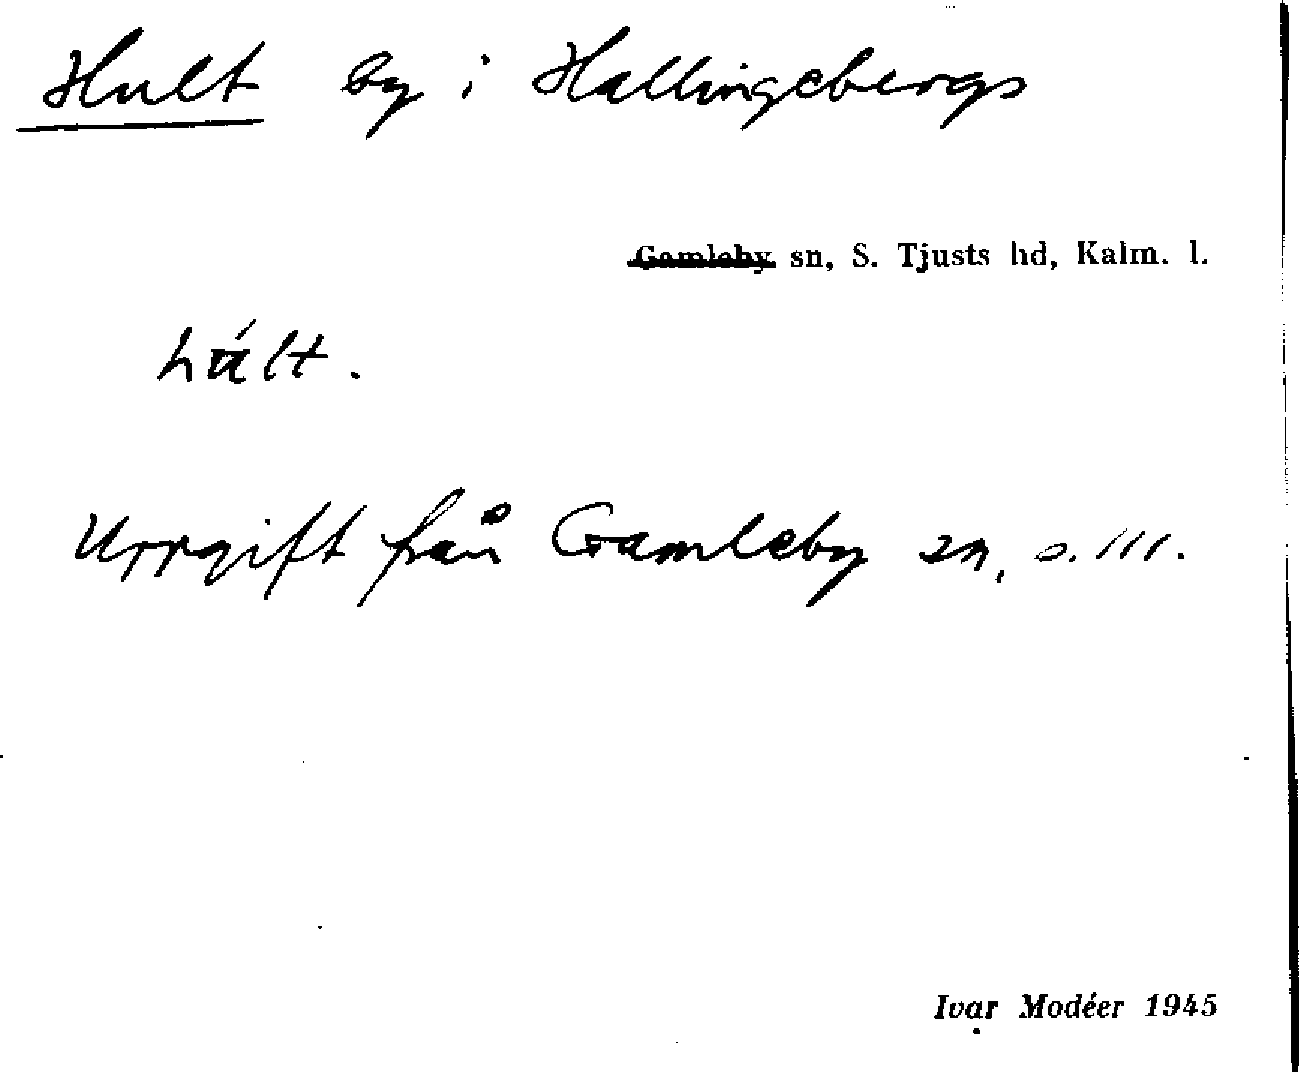 Hult by i Hallingebergs
Gamleby sn, S. Tjusts hd, Kalm. l.
húlt.
Uppgift från Gamleby sn, s. 111.
Ivar Modéer 1945